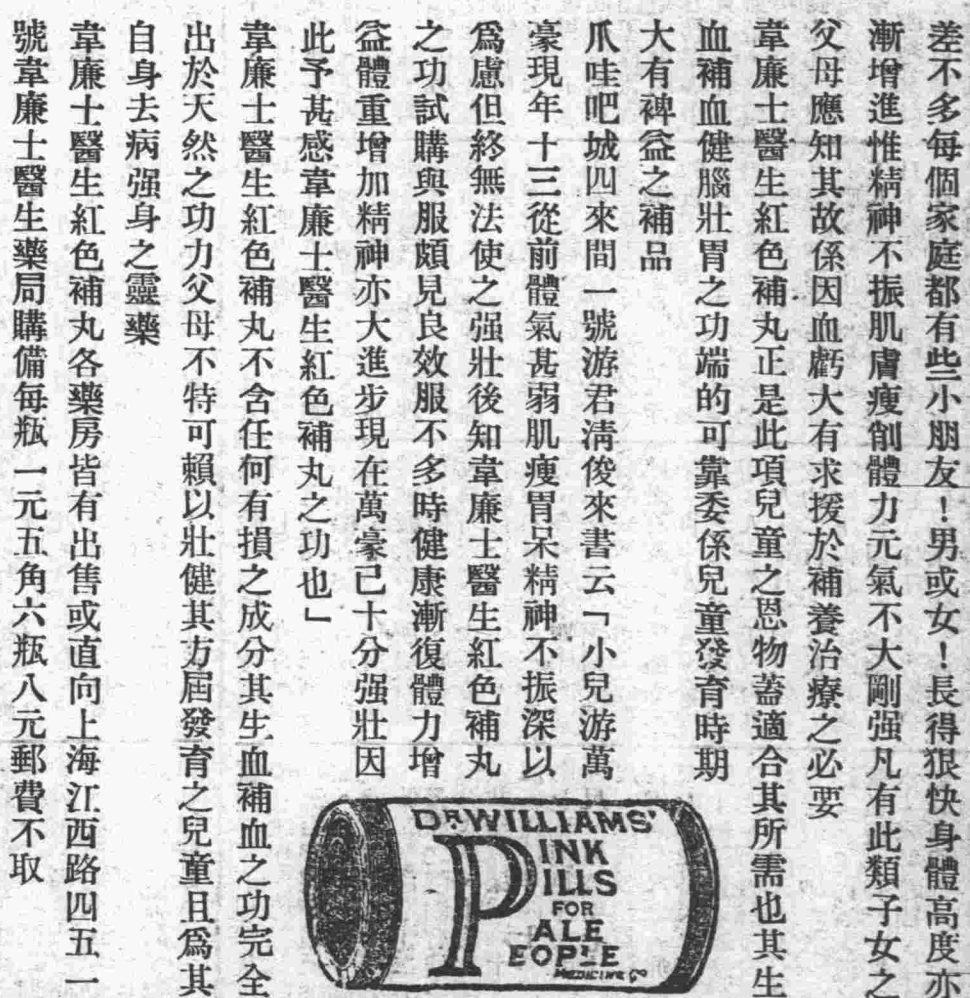 差不多每個家庭都有些小朋友！男或女！長得狠快身體高度亦
漸增進惟精神不振肌膚瘦削體力元氣不大剛强凡有此類子女之
父母應知其故係因血虧大有求援於補養治療之必要
韋廉士醫生紅色補丸正是此項兒童之恩物蓋適合其所需也其生
血補血健腦壯胃之功端的可靠委係兒童發育時期
大有裨益之補品
爪哇吧城四來間一號游君淸俊來書云「小兒游萬
豪現年十三從前體氣甚弱肌瘦胃呆精神不振深以
爲慮但終無法使之强壯後知韋廉士醫生紅色補丸
之功試購與服頗見良效服不多時健康漸復體力增
益體重增加精神亦大進步現在萬豪已十分强壯因
此予甚感韋廉士醫生紅色補丸之功也」
韋廉士醫生紅色補丸不含任何有損之成分其生血補血之功完全
出於天然之功力父母不特可賴以壯健其方屆發育之兒童且爲其
自身去病强身之靈藥
韋廉士醫生紅色補丸各藥房皆有出售或直向上海江西路四五一
號韋廉士醫生藥局購備每瓶一元五角六瓶八元郵費不取
DR. WILLIAMS'
PINK
PILLS
FOR
PALE
PEOPLE
MEDICINE Co